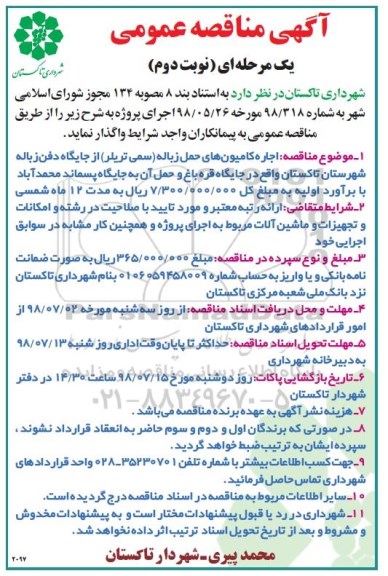 آگهی مناقصه عمومی
یک مرحله‌ای (نوبت دوم)
شهرداری تاکستان
شهرداری تاکستان در نظر دارد به استناد بند ۸ مصوبه ۱۳۴ مجوز شورای اسلامی
شهر به شماره ۹۸/۳۱۸ مورخه ۹۸/۰۵/۲۶ اجرای پروژه به شرح زیر را از طریق
مناقصه عمومی به پیمانکاران واجد شرایط واگذار نماید.
۱-موضوع مناقصه: اجاره کامیون‌های حمل زباله (سمی تریلر) از جایگاه دفن زباله
شهرستان تاکستان واقع در جایگاه قره باغ و حمل آن به جایگاه پسماند محمدآباد
با برآورد اولیه به مبلغ کل ۷/۳۰۰/۰۰۰/۰۰۰ ریال به مدت ۱۲ ماه شمسی
۲-شرایط متقاضی: ارائه رتبه معتبر و مورد تایید با صلاحیت در رشته و امکانات
و تجهیزات و ماشین آلات مربوط به اجرای پروژه و همچنین کار مشابه در سوابق
اجرایی خود
۳-مبلغ و نوع سپرده در مناقصه: مبلغ ۳۶۵/۰۰۰/۰۰۰ ریال به صورت ضمانت
نامه بانکی و یا واریز به حساب شماره ۰۱۰۶۰۵۹۴۵۸۰۰۹ بنام شهرداری تاکستان
نزد بانک ملی شعبه مرکزی تاکستان
۴-مهلت و محل دریافت اسناد مناقصه: از روز سه شنبه مورخه ۹۸/۰۷/۰۲ از
امور قراردادهای شهرداری تاکستان
۵-مهلت تحویل اسناد مناقصه: حداکثر تا پایان وقت اداری روز شنبه ۹۸/۰۷/۱۳
به دبیرخانه شهرداری
۶-تاریخ بازگشایی پاکات: روز دوشنبه مورخ ۹۸/۰۷/۱۵ ساعت ۱۴/۳۰ در دفتر
شهردار تاکستان
۷-هزینه نشر آگهی به عهده برنده مناقصه می‌باشد.
۸- در صورتی که برندگان اول و دوم و سوم حاضر به انعقاد قرارداد نشوند،
سپرده ایشان به ترتیب ضبط خواهد گردید.
۹-جهت کسب اطلاعات بیشتر با شماره تلفن ۳۵۲۳۰۷۰۱-۰۲۸ واحد قراردادهای
شهرداری تماس حاصل فرمائید.
۱۰-سایر اطلاعات مربوط به مناقصه در اسناد مناقصه درج گردیده است.
۱۱-شهرداری در رد یا قبول پیشنهادات مختار است و به پیشنهادات مخدوش
و مشروط و بعد از تاریخ تحویل اسناد ترتیب اثر داده نخواهد شد.
محمد پیری-شهردار تاکستان
۲۰۹۷
۰۲۱-۸۸۳۴۹۶۷۰-۵